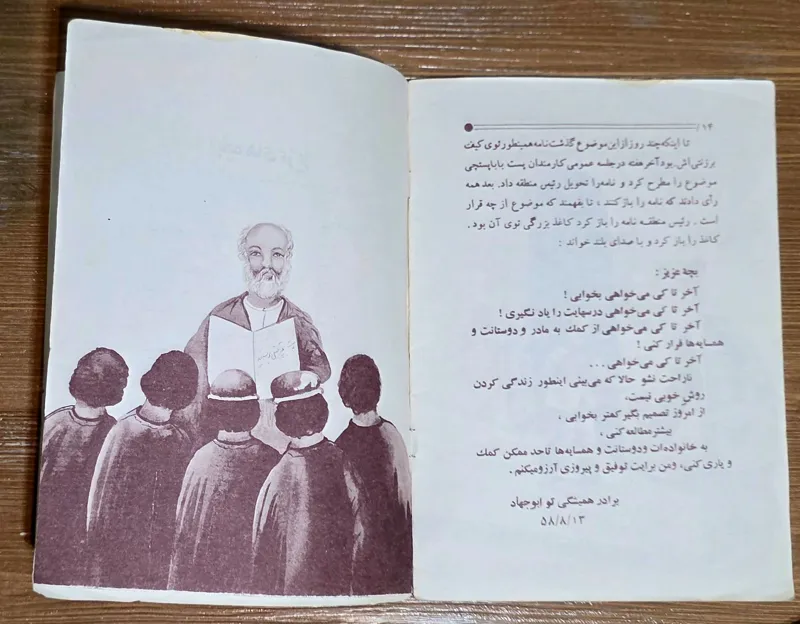 ۱۴
تا اینکه چند روز از این موضوع گذشت نامه همینطور توی کیف
برزنتی‌اش بود آخر هفته در جلسه عمومی کارمندان پست با با پستچی
موضوع را مطرح کرد و نامه را تحویل رئیس منطقه داد. بعد همه
رأی دادند که نامه را باز کنند ، تا بفهمند که موضوع از چه قرار
است . رئیس منطقه نامه را باز کرد کاغذ بزرگی توی آن بود .
کاغذ را باز کرد و با صدای بلند خواند :
بچهٔ عزیز :
آخر تا کی می‌خواهی بخوابی !
آخر تا کی می‌خواهی درسهایت را یاد نگیری !
آخر تا کی می‌خواهی از کمك به مادر و دوستانت و
همسایه‌ها فرار کنی !
آخر تا کی می‌خواهی . . .
ناراحت نشو حالا که می‌بینی اینطور زندگی کردن
روش خوبی نیست،
از امروز تصمیم بگیر کمتر بخوابی ،
بیشتر مطالعه کنی ،
به خانواده‌ات و دوستانت و همسایه‌ها تاحد ممکن کمك
و یاری کنی، ومن برایت توفیق و پیروزی آرزو میکنم .
برادر همیشگی تو ابوجهاد
۵۸/۸/۱۳